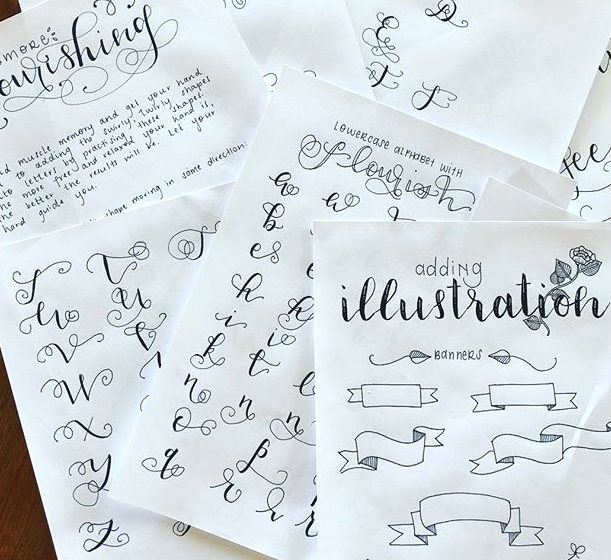 more:
ourishing
d muscle memory and get your hand
to adding the swirly, twirly shapes
by practising these shapes.
e more free and relaxed your hand is,
he better the results will be. Let your
hand guide you.
hape moving in same direction:
E
F
fee
S T
V
W
X
Y
Z
Lowercase alphabet with
flourish
a a
b
h h
i i
k t l
n
o n n
q p
r r
adding
illustration
BANNERS